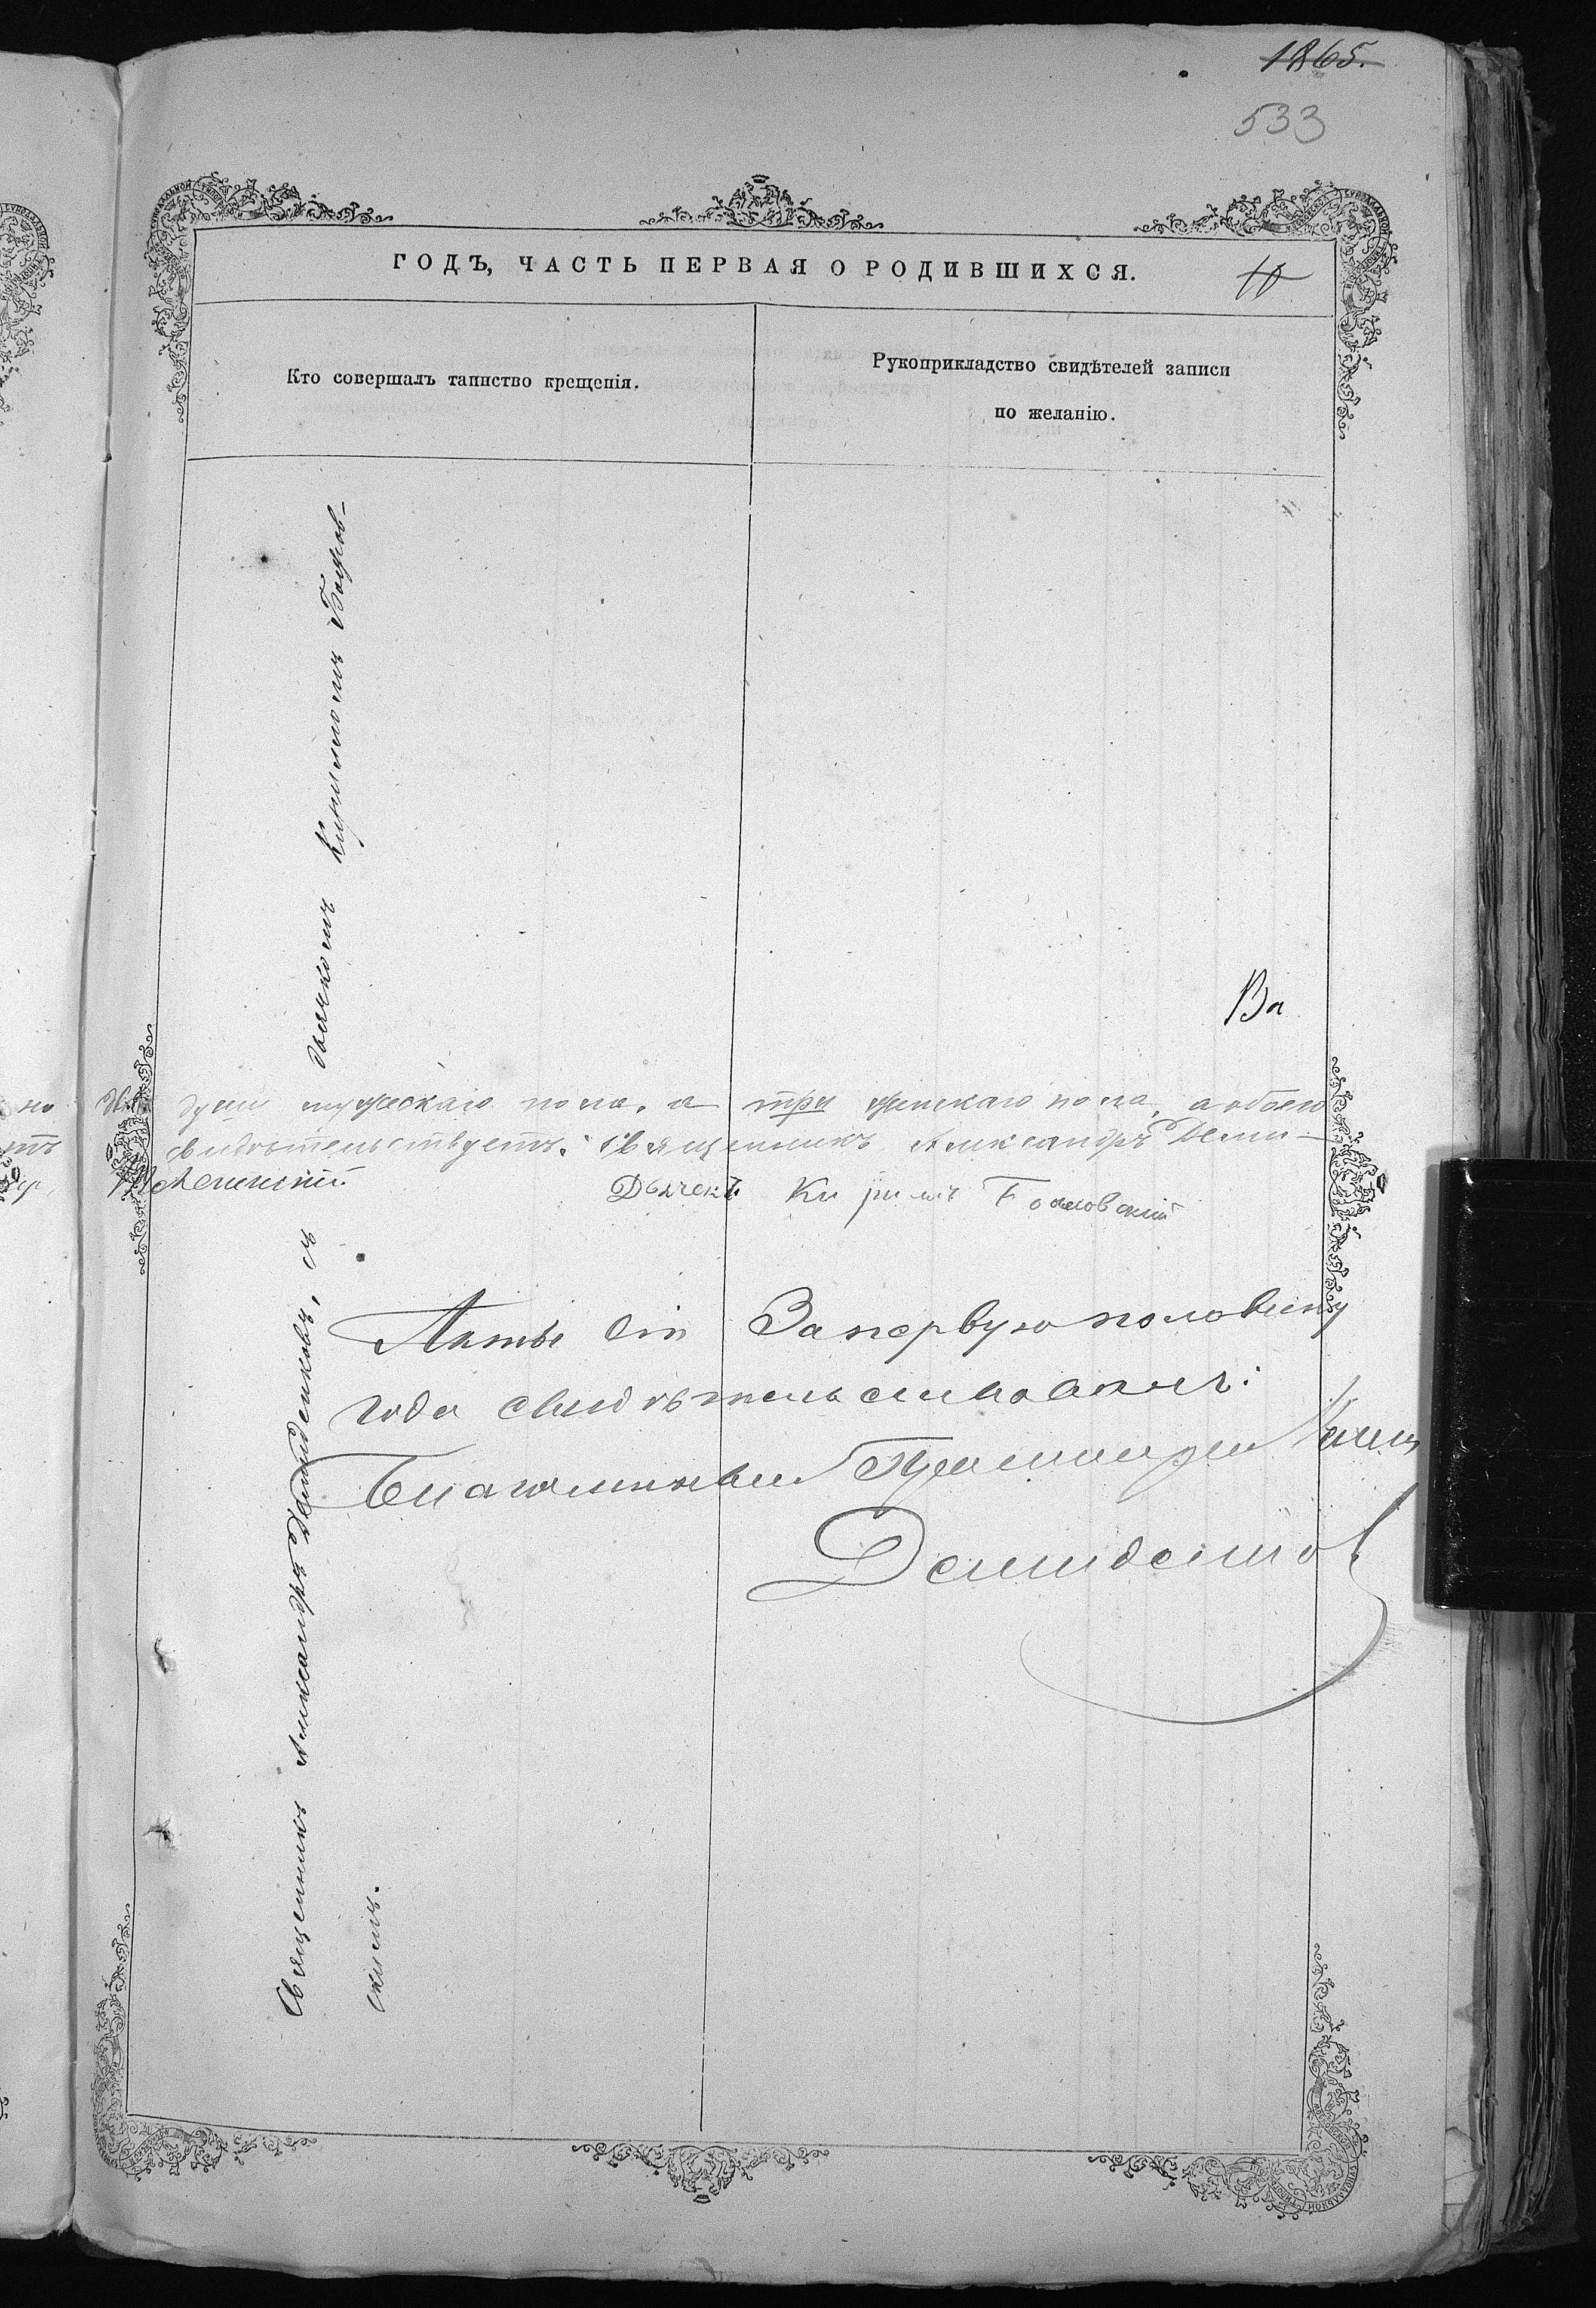 1865.
533
ГОДЪ, ЧАСТЬ ПЕРВАЯ О РОДИВШИХСЯ.
10
Кто совершалъ таинство крещенія.
Рукоприкладство свидѣтелей записи
по желанію.
Священникъ Александръ Демиденковъ, съ дьячкомъ Кириломъ Боров-
скимъ.
Ва
души мужескаго пола, а три женскаго пола, а обоего
свидѣтельствуетъ: Священникъ Александръ Деми-
Дьячекъ Кирилъ
Акты сіи За первую половину
года свидѣтельствовалъ:
Благочинный
Демиденков